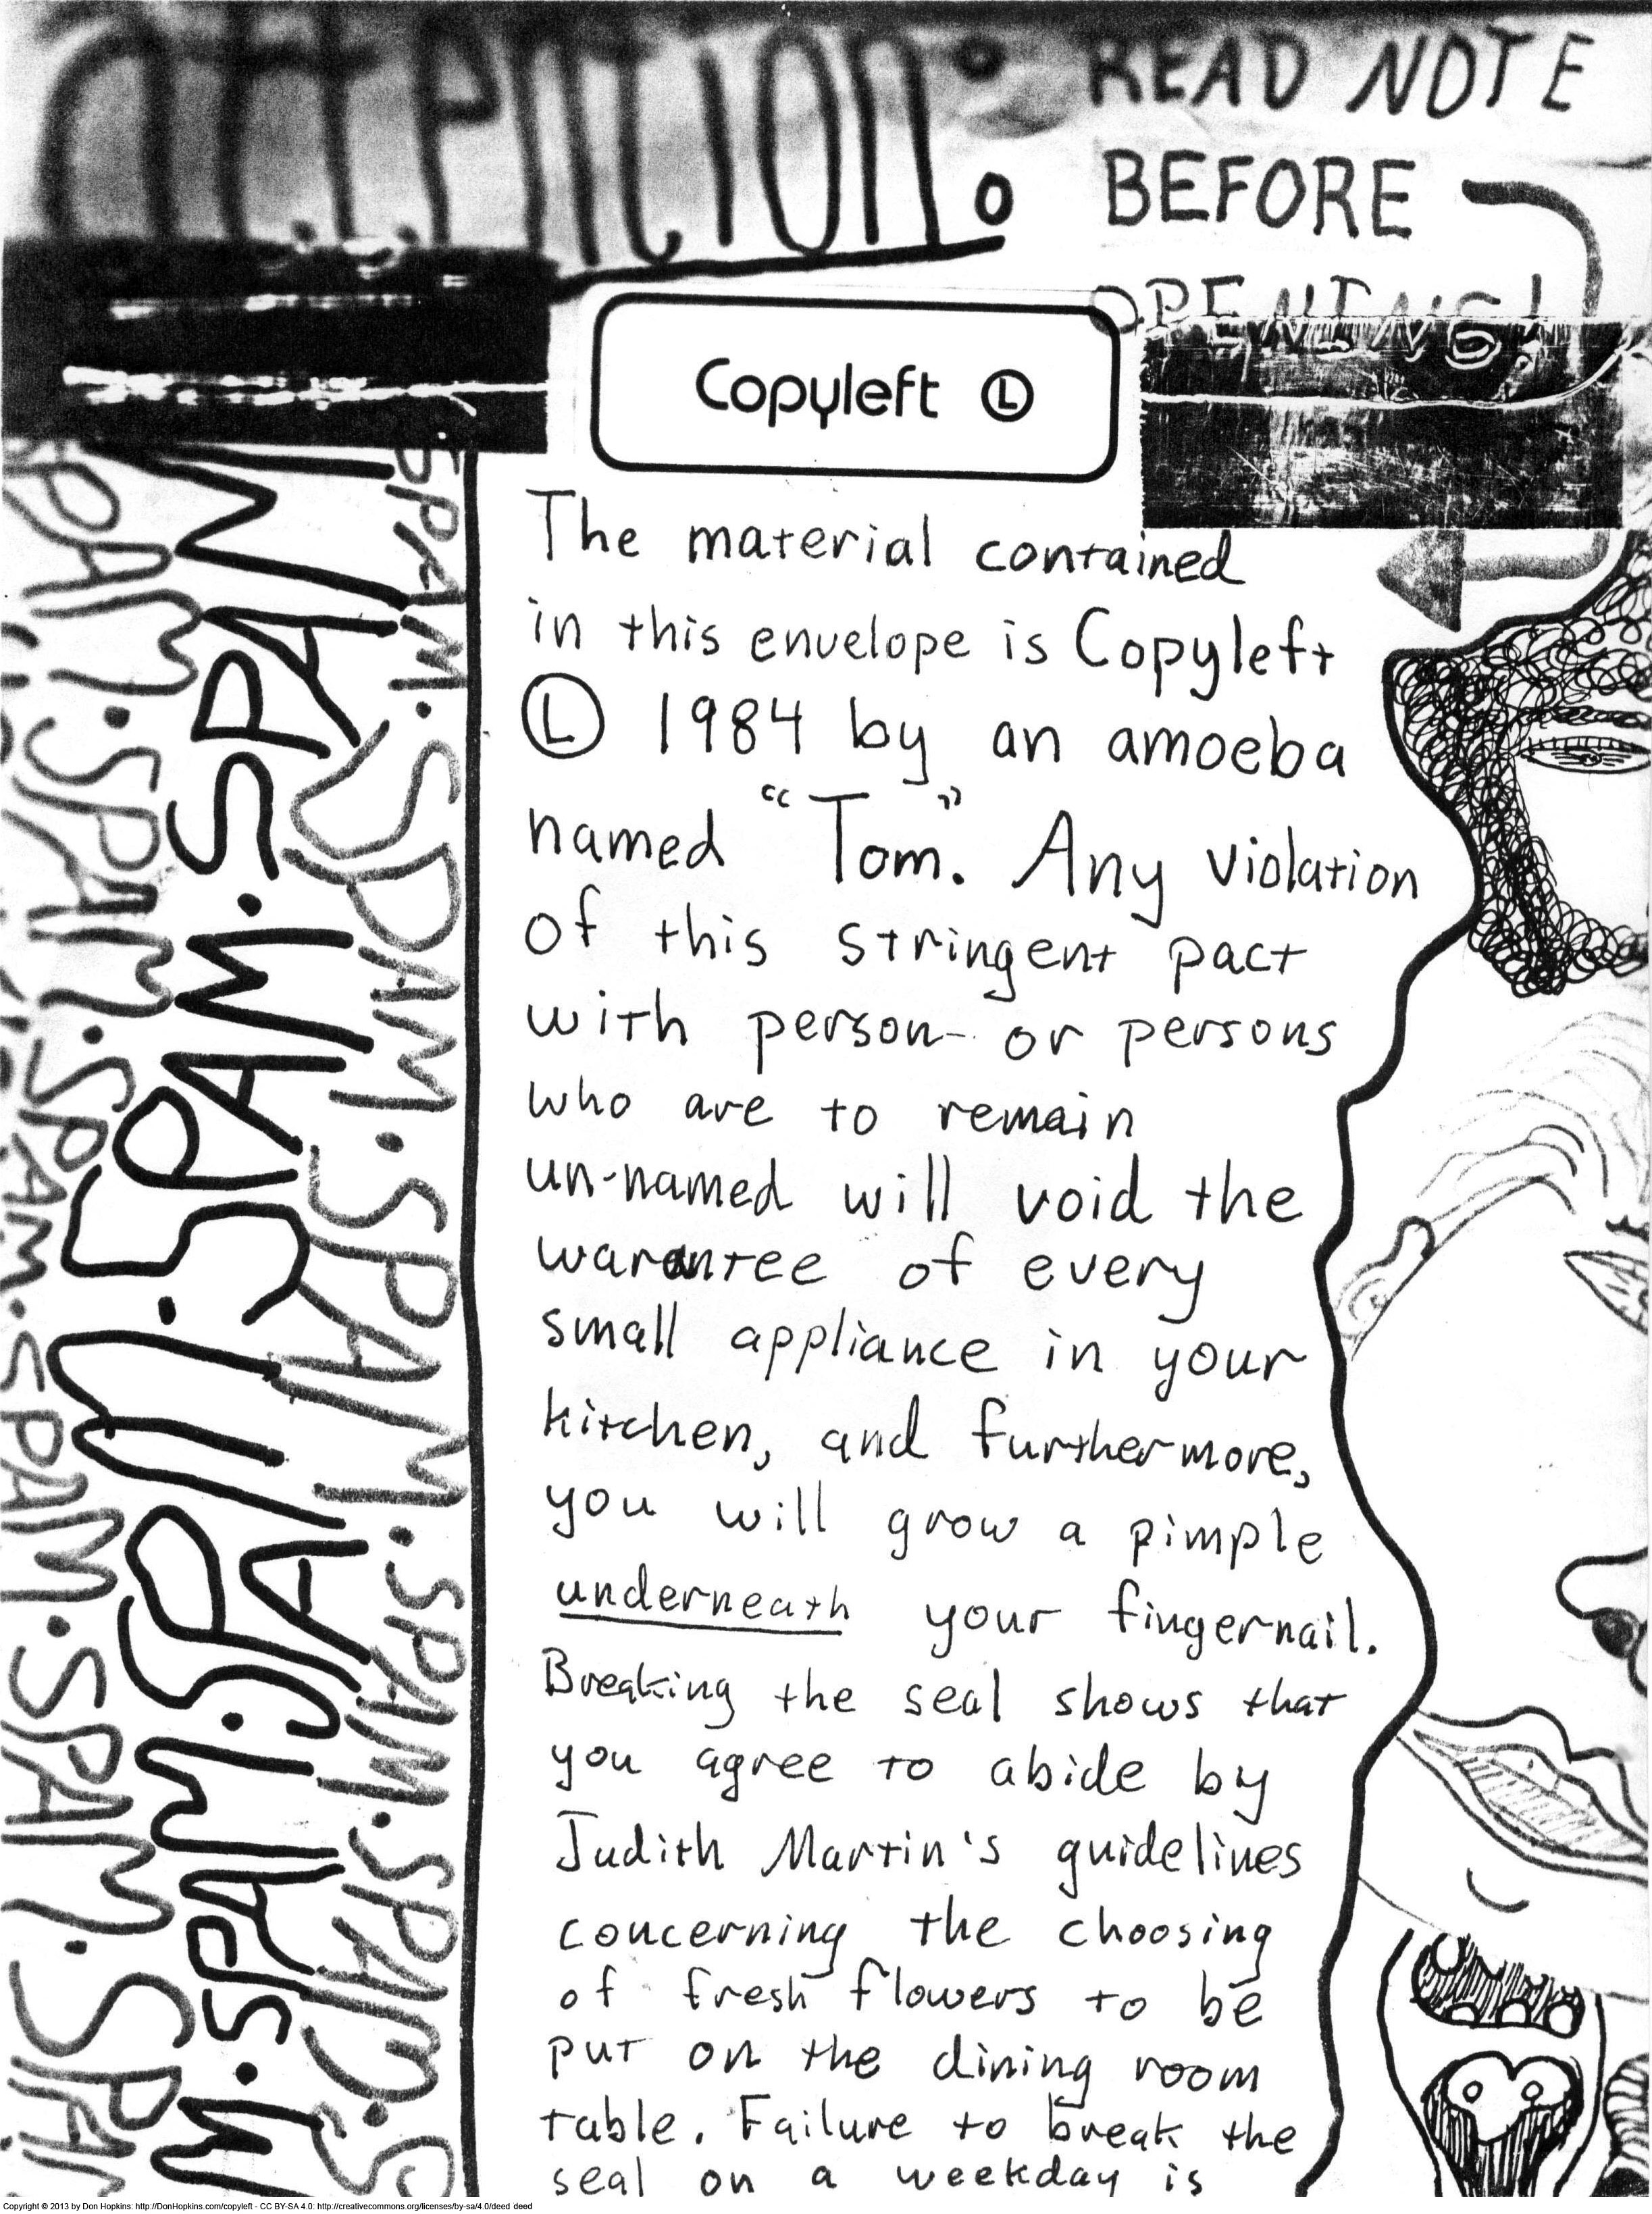 attention:
READ NOTE
BEFORE
OPENING!
Copyleft Ⓛ
The material contained
in this envelope is Copyleft
Ⓛ 1984 by an amoeba
named “Tom.” Any violation
of this stringent pact
with person- or persons
who are to remain
un-named will void the
warantee of every
small appliance in your
kitchen, and furthermore,
you will grow a pimple
underneath your fingernail.
Breaking the seal shows that
you agree to abide by
Judith Martin's guidelines
concerning the choosing
of fresh flowers to be
put on the dining room
table. Failure to break the
seal on a weekday is
SPAM · SPAM · SPAM · SPAM · SPAM · SPAM
SPAM · SPAM · SPAM · SPAM · SPAM · SPAM · S
SPAM · SPAM · SPAM · SPAM · SPAM · SPAM · SPAM
Copyright © 2013 by Don Hopkins: http://DonHopkins.com/copyleft - CC BY-SA 4.0: http://creativecommons.org/licenses/by-sa/4.0/deed deed